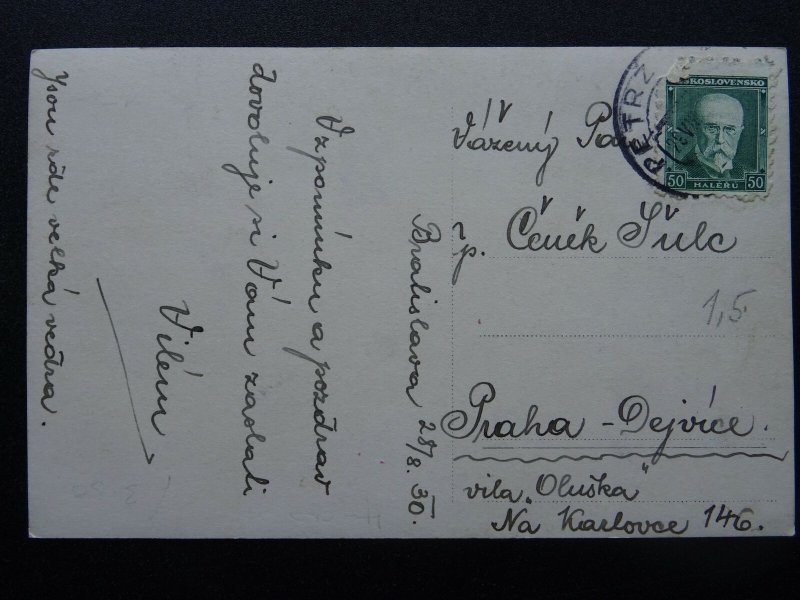 Bratislava 28/8. 30.
Vzpomínku a pozdrav
dovoluje si Vám zaslati
Vilém
Jsou zde velká vedra.
ČESKOSLOVENSKO
50 HALÉŘŮ 50
PETRŽ
Vážený Pa
p. Čeněk Šulc
1,5
Praha - Dejvice.
vila „Oluška"
Na Karlovce 146.